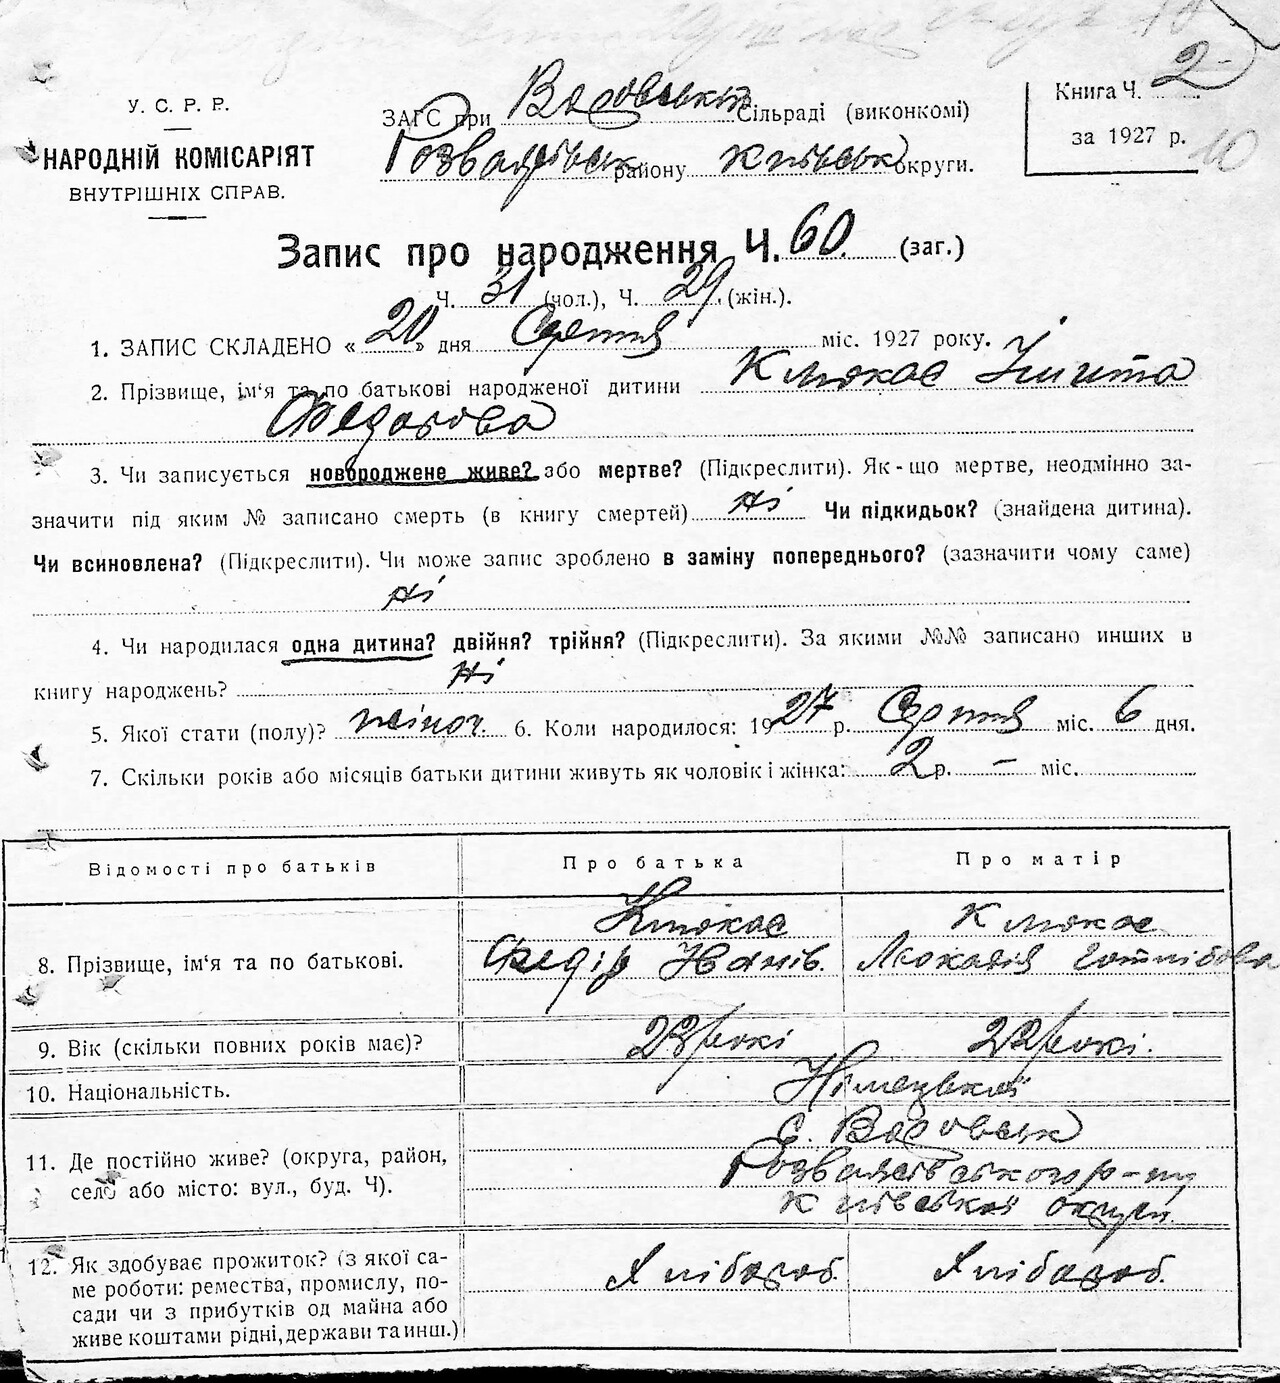 У. С. Р. Р.
НАРОДНІЙ КОМІСАРІЯТ
ВНУТРІШНІХ СПРАВ.
ЗАГС при Сільраді (виконкомі)
Розважівськ району Київськ округи.
Книга Ч. 2
за 1927 р.
10
Запис про народження Ч. 60. (заг.)
Ч. 31 (чол.), Ч. 29 (жін.).
1. ЗАПИС СКЛАДЕНО « 20 » дня Серпня міс. 1927 року.
2. Прізвище, ім‘я та по батькові народженої дитини Клюкас
Федорова
3. Чи записується новороджене живе? або мертве? (Підкреслити). Як-що мертве, неодмінно за-
значити під яким № записано смерть (в книгу смертей) Ні Чи підкидьок? (знайдена дитина).
Чи всиновлена? (Підкреслити). Чи може запис зроблено в заміну попереднього? (зазначити чому саме)
Ні
4. Чи народилася одна дитина? двійня? трійня? (Підкреслити). За якими №№ записано инших в
книгу народжень? Ні
5. Якої стати (полу)? жіноч. 6. Коли народилося: 1927 р. Серпня міс. 6 дня.
7. Скільки років або місяців батьки дитини живуть як чоловік і жінка: 2 р. – міс.
Відомості про батьків Про батька Про матір
8. Прізвище, ім‘я та по батькові. Клюкас Федір Іванів. Клюкас Леокадія Готлібова
9. Вік (скільки повних років має)? 23 рокі 22 рокі.
10. Національність. Німецької
11. Де постійно живе? (округа, район,
село або місто: вул., буд. Ч). с.
Розважівського р-ну
Київської округи
12. Як здобуває прожиток? (з якої са-
ме роботи: ремества, промислу, по-
сади чи з прибутків од майна або
живе коштами рідні, держави та инш.) Хлібороб. Хлібороб.